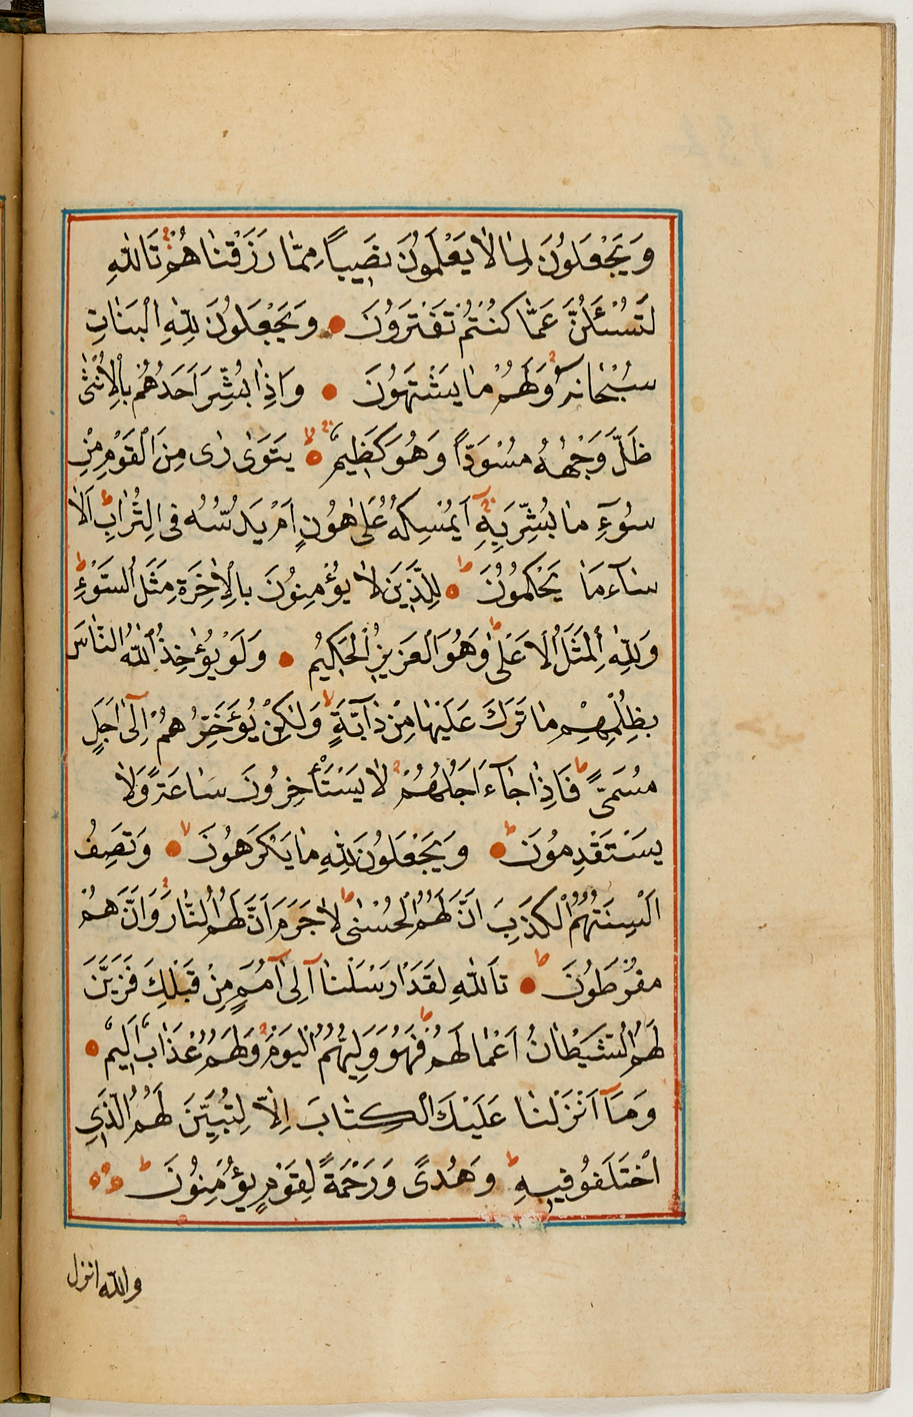 وَيَجْعَلُونَ لِمَا لَا يَعْلَمُونَ نَصِيبًا مِمَّا رَزَقْنَاهُمْ تَاللّٰهِ
لَتُسْئَلُنَّ عَمَّا كُنْتُمْ تَفْتَرُونَ وَيَجْعَلُونَ لِلّٰهِ الْبَنَاتِ
سُبْحَانَهُ وَلَهُمْ مَا يَشْتَهُونَ وَاِذَا بُشِّرَ اَحَدُهُمْ بِالْاُنْثٰى
ظَلَّ وَجْهُهُ مُسْوَدًّا وَهُوَ كَظِيمٌ يَتَوَارٰى مِنَ الْقَوْمِ مِنْ
سُوٓءِ مَا بُشِّرَ بِهِ اَيُمْسِكُهُ عَلٰى هُونٍ اَمْ يَدُسُّهُ فِى التُّرَابِ اَلَا
سَآءَ مَا يَحْكُمُونَ لِلَّذِينَ لَا يُؤْمِنُونَ بِالْاٰخِرَةِ مَثَلُ السَّوْءِ
وَلِلّٰهِ الْمَثَلُ الْاَعْلٰى وَهُوَ الْعَزِيزُ الْحَكِيمُ وَلَوْ يُؤَاخِذُ اللّٰهُ النَّاسَ
بِظُلْمِهِمْ مَا تَرَكَ عَلَيْهَا مِنْ دَآبَّةٍ وَلٰكِنْ يُؤَخِّرُهُمْ اِلٰٓى اَجَلٍ
مُسَمًّى فَاِذَا جَآءَ اَجَلُهُمْ لَا يَسْتَأْخِرُونَ سَاعَةً وَلَا
يَسْتَقْدِمُونَ وَيَجْعَلُونَ لِلّٰهِ مَا يَكْرَهُونَ وَتَصِفُ
اَلْسِنَتُهُمُ الْكَذِبَ اَنَّ لَهُمُ الْحُسْنٰى لَا جَرَمَ اَنَّ لَهُمُ النَّارَ وَاَنَّهُمْ
مُفْرَطُونَ تَاللّٰهِ لَقَدْ اَرْسَلْنَآ اِلٰٓى اُمَمٍ مِنْ قَبْلِكَ فَزَيَّنَ
لَهُمُ الشَّيْطَانُ اَعْمَالَهُمْ فَهُوَ وَلِيُّهُمُ الْيَوْمَ وَلَهُمْ عَذَابٌ اَلِيمٌ
وَمَآ اَنْزَلْنَا عَلَيْكَ الْكِتَابَ اِلَّا لِتُبَيِّنَ لَهُمُ الَّذِي
اخْتَلَفُوا فِيهِ وَهُدًى وَرَحْمَةً لِقَوْمٍ يُؤْمِنُونَ
والله انزل